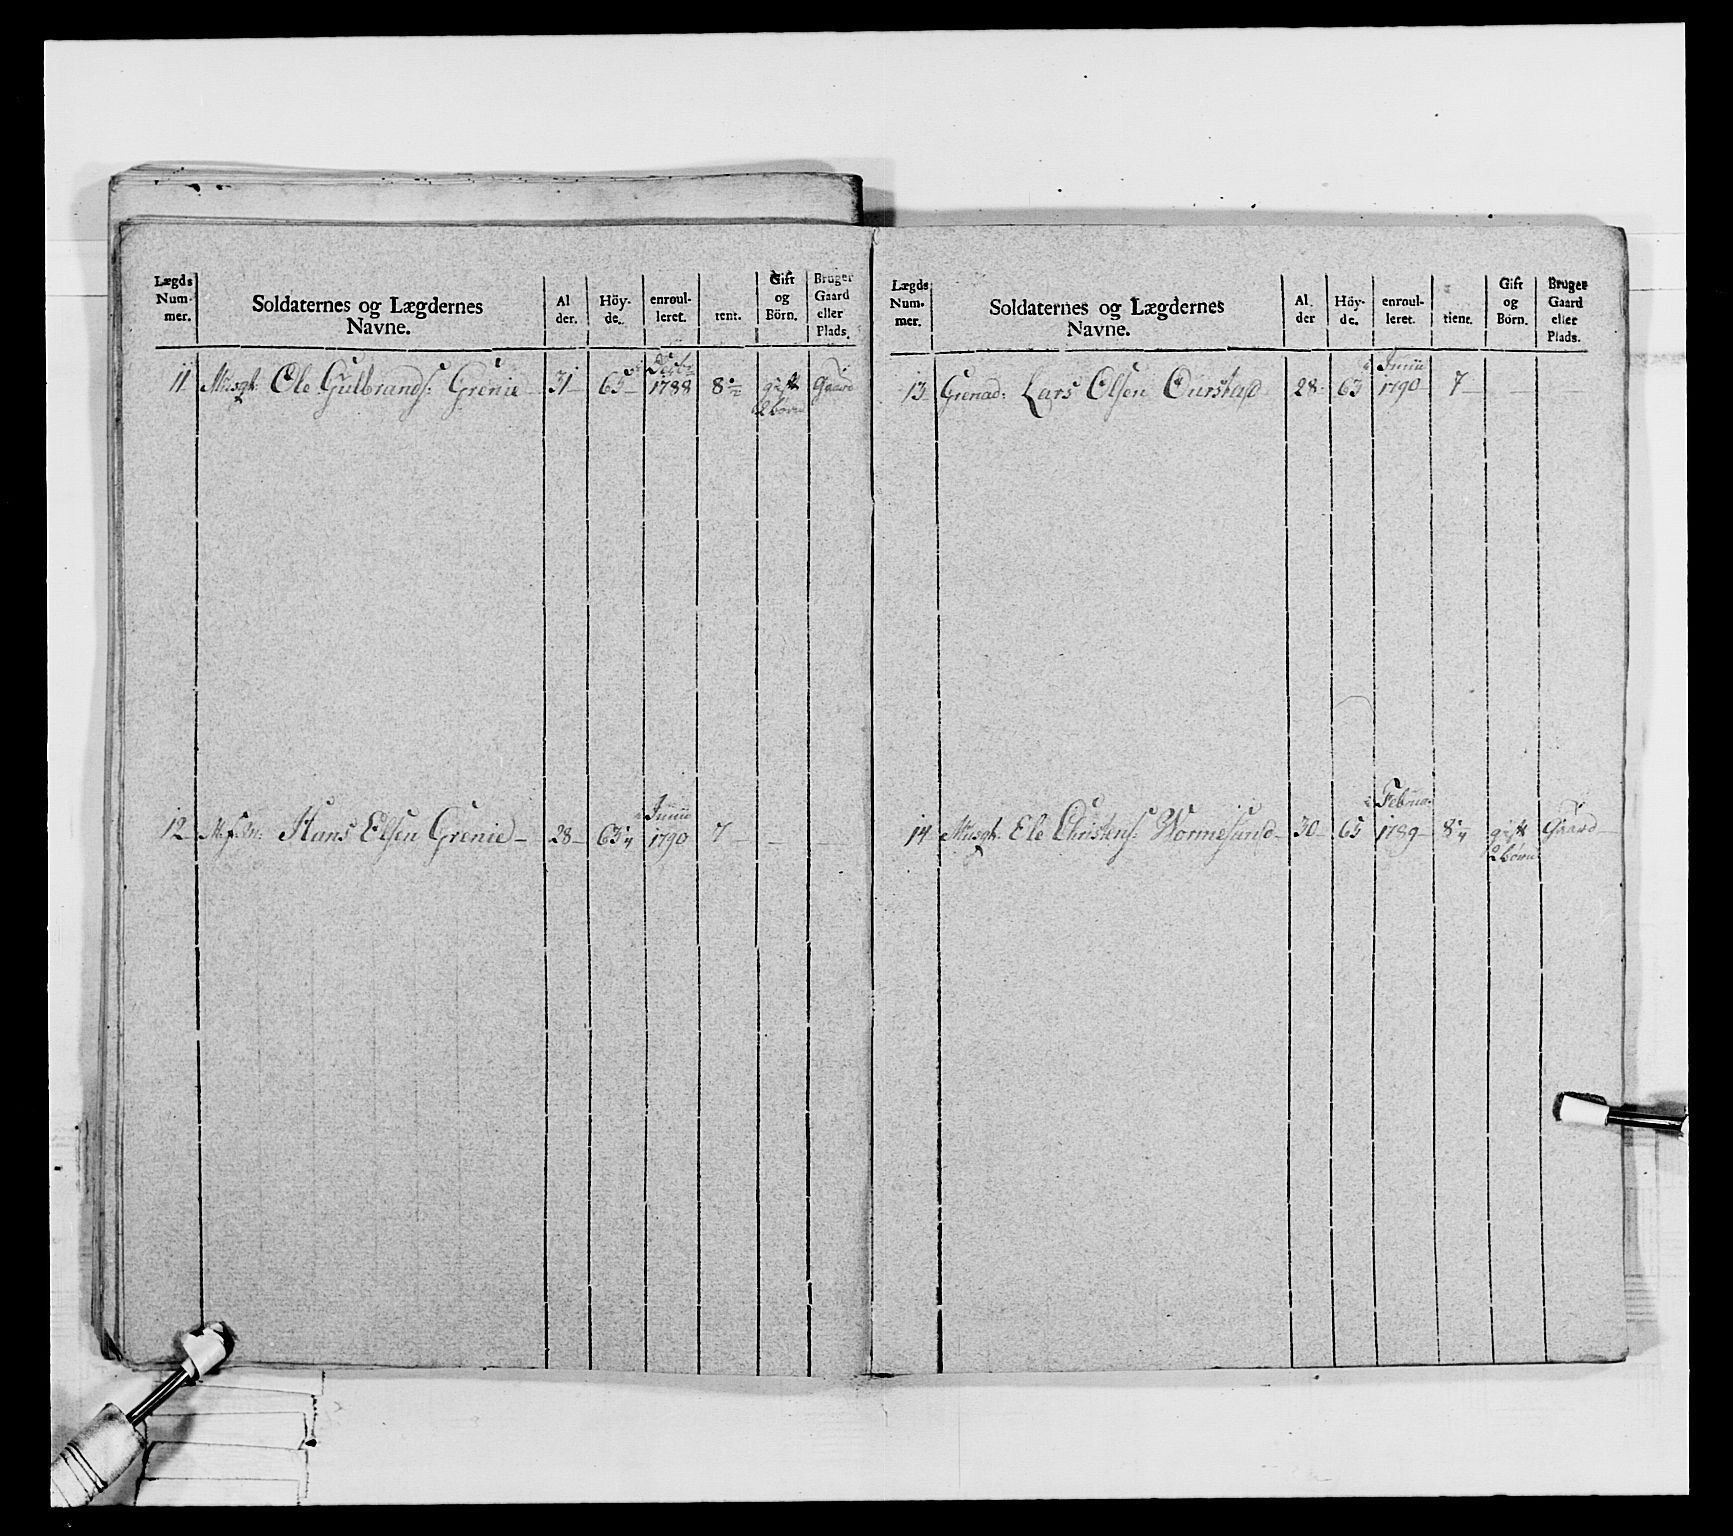 Lægds Num- mer. Soldaternes og Lægdernes Navne. Al der. Höy- de. enroul- leret. tient. Gift og Börn. Bruger Gaard eller Plads.
11 Musqt: Ole Gulbrands: Grenie 31 65 1788 8½ gift 2 børn Gaard
12 Hans Olsen Grenie 28 63¼ Junii 1790 7
Lægds Num- mer. Soldaternes og Lægdernes Navne. Al. der Höy- de. enroul- leret. tient. Gift og Börn. Bruger Gaard eller Plads.
13 Grenad: Lars Olsen Ourstad 28 63 Junii 1790 7
14 Musqt: Ole Christens: Wormesund 30 65 1789 8¼ gift 2 børn Gaard